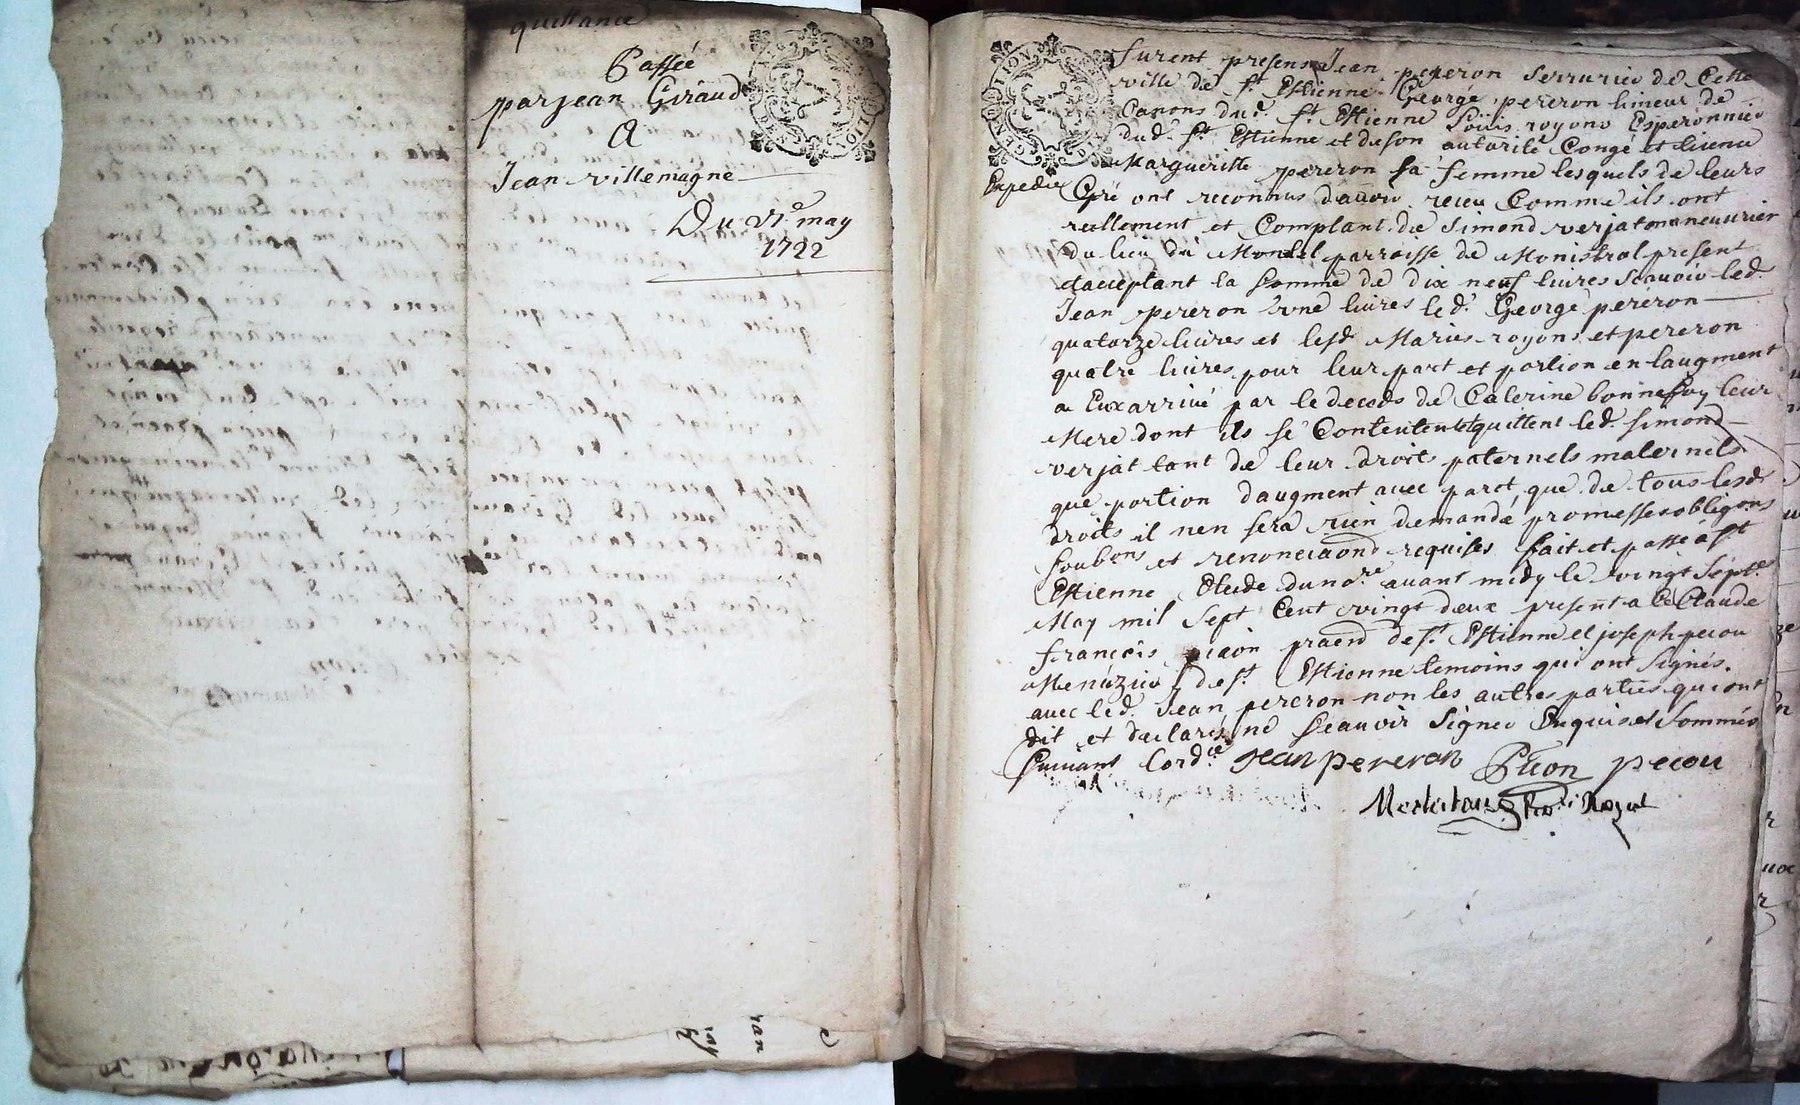 quittance
Passée
par jean Giraud
A
Jean villemagne
Du 27e may
1722
furent presens Jean pereron serrurier de Cette
ville de st Estienne George pereron limeur de
Canons dud. st Estienne Loüis royons Esperonnier
dud. st Estienne et de son autorité Congé et licence
Margueritte pereron sa femme lesquels de leurs
Expedié
Gré ont reconnus d'auoir receu Comme ils ont
reellement et Comptant de Simond verjat maneuurier
du lieu du Montel parroisse de Monistrol present
et acceptant la somme de dix neuf liures scauoir led.
Jean pereron vne liures led. George pereron
quatorze liures et lesd Maries royons et pereron
quatre liures pour leur part et portion en laugment
a Eux arriué par le deceds de Caterine bonnefoy leur
Mere dont ils se Contentent et quittent led. simond
verjat tant de leur droits paternels maternels
que portion daugment auec pact que de tous lesd
droits il nen sera rien demandé promesses obligons
soubons et renonciaond requises fait et passé a st
Estienne Etude du nore auant midy le vingt sept
May mil sept Cent vingt deux present a Ce Claude
françois praend de st Estienne et joseph pecou
Menuzier de st Estienne temoins qui ont signés
auec led. Jean pereron non les autres parties qui ont
dit et declarés ne scauoir signer Enquis et sommés
suiuant lord.ce jean pereron pecou